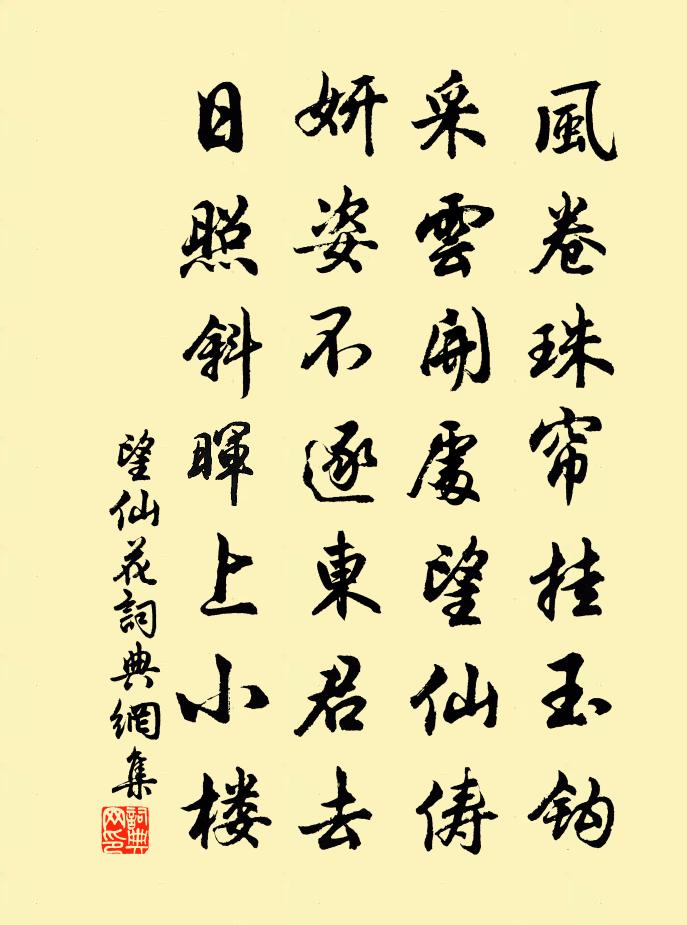 風卷珠帘挂玉鈎
采雲開處望仙儔
妍姿不逐東君去
日照斜暉上小楼
望仙花詞典網集
詞典网印